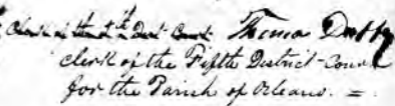 Clerk of the 5th Dist. Court Thomas Duffy
clerk of the Fifth District Court
for the Parish of Orleans. =